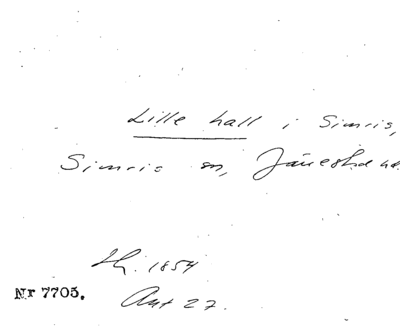 Lille hall i Simris,
Simris sn, Järrestad hd.
1854
Nr 7705.
Ant 27.